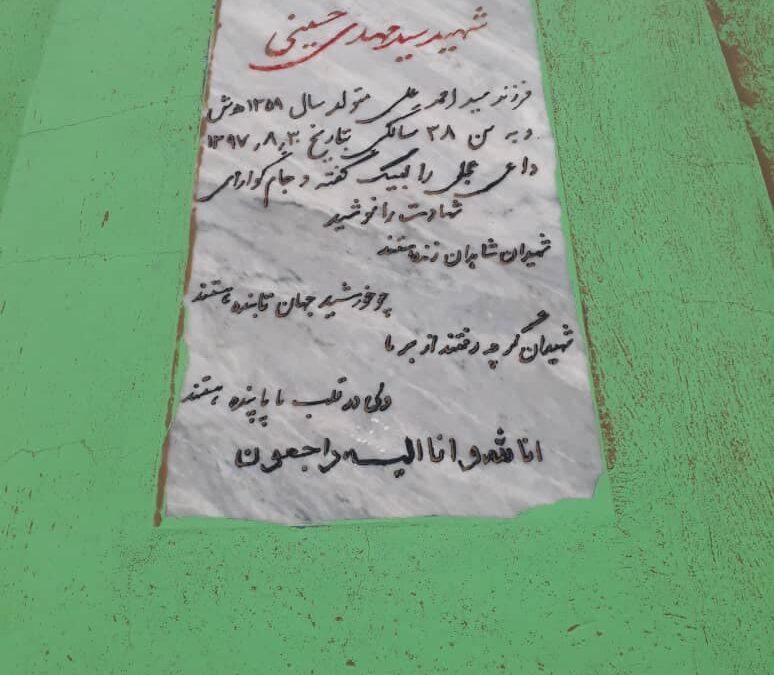 شهید سید مهدی حسینی
فرزند سید احمد علی متولد سال ۱۳۵۹ ه ش
و به سن ۳۸ سالگی بتاریخ ۱۳۹۷٫۸٫۳
داعی عجل را لبیک گفته و جام گوارای
شهادت را نوشید
شهیدان شاهدان زنده هستند
چو خورشید جهان تابنده هستند
شهیدان گر چه رفتند از بر ما
ولی در قلب ما پاینده هستند
انا لله و انا الیه راجعون